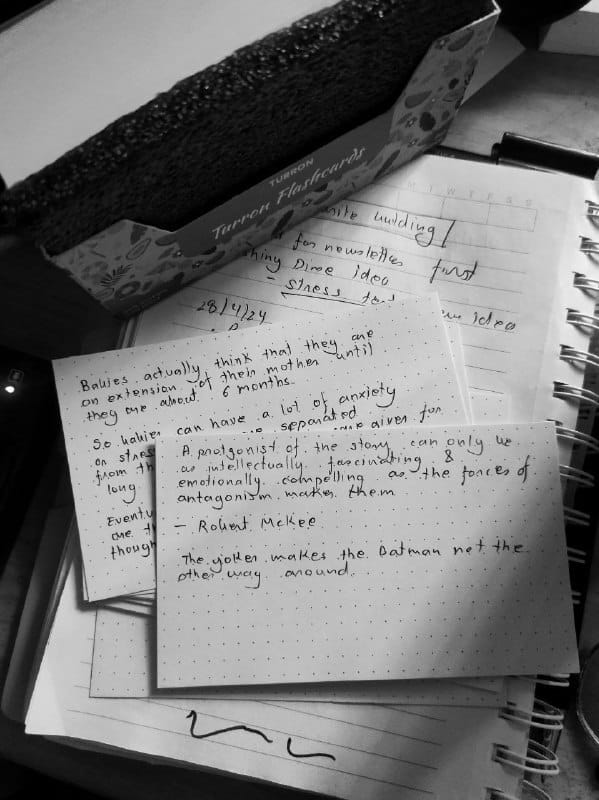 TURRON
Turron Flashcards
M T W T F S S
site building
for newsletter first
Dime idea
- stress test
idea
28/4/24
Babies actually think that they are
an extension of their mother until
they are about 6 months.
So babies can have a lot of anxiety
or stress separated
from th are given for
long.
Eventu
are th
though
A protgonist of the story can only be
as intellectually fascinating &
emotionally compelling as the forces of
antagonism makes them
- Robert McKee
The joker makes the Batman not the
other way around.